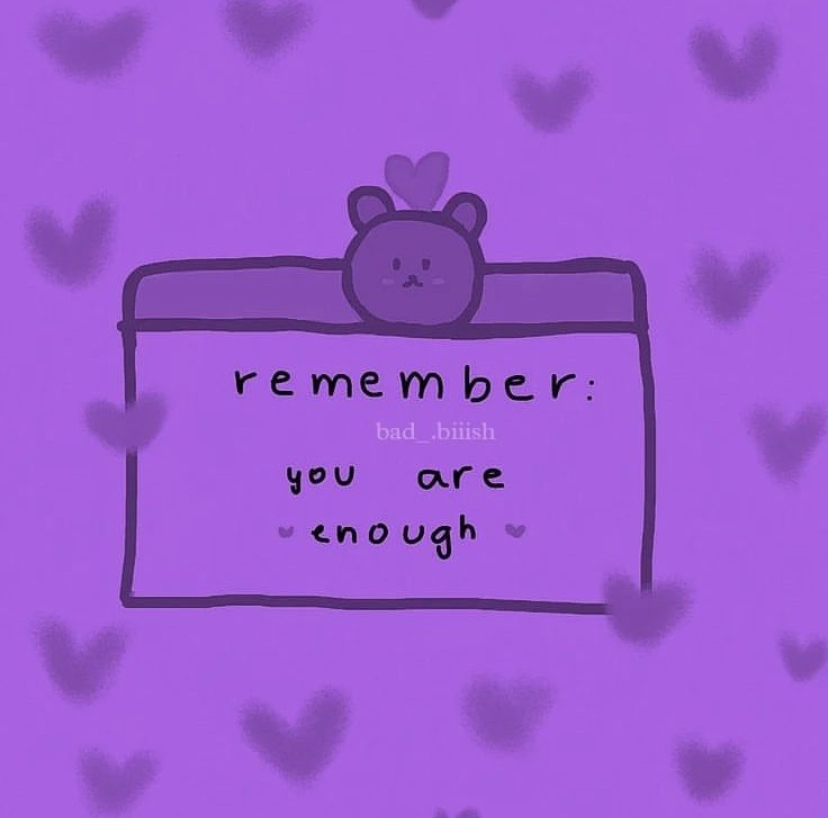 remember:
bad_.biiish
you are
enough